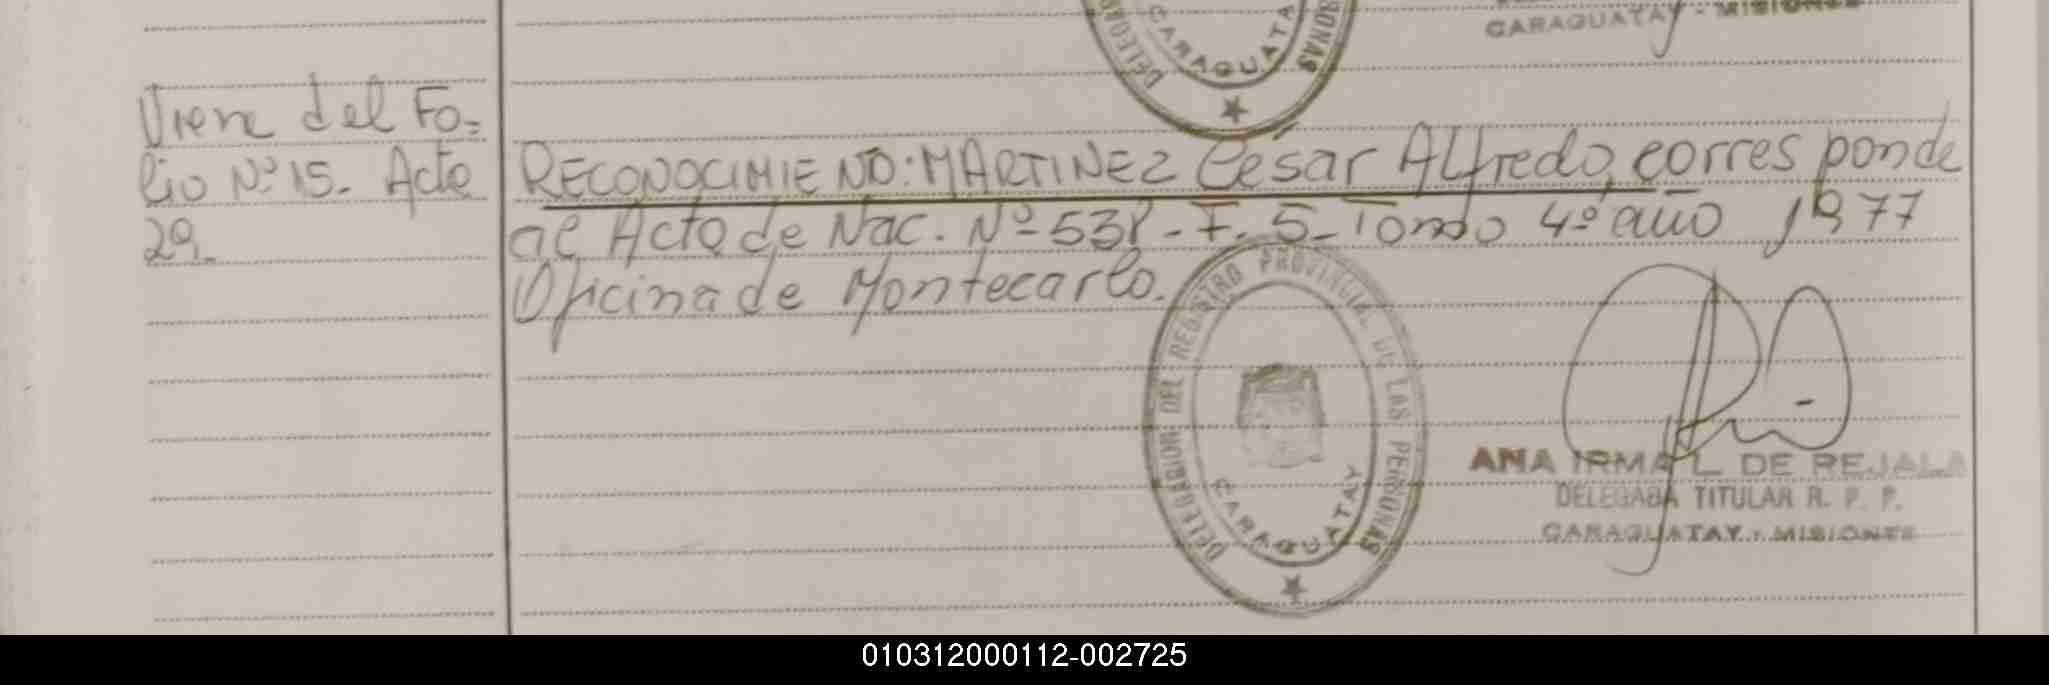 CARAGUATAY - MISIONES
DELEG
CARAGUATA
SONAS
Viene del Fo-
lio Nº 15. Acta
29.
RECONOCIMIENTO: MARTINEZ César Alfredo, corresponde
al Acta de Nac. Nº 538 - F. 5 - Tomo 4º año 1977
Oficina de Montecarlo.
DELEGACION DEL REGISTRO PROVINCIAL DE LAS PERSONAS
CARAGUATAY
ANA IRMA L. DE REJALA
DELEGADA TITULAR R. P. P.
CARAGUATAY - MISIONES
010312000112-002725